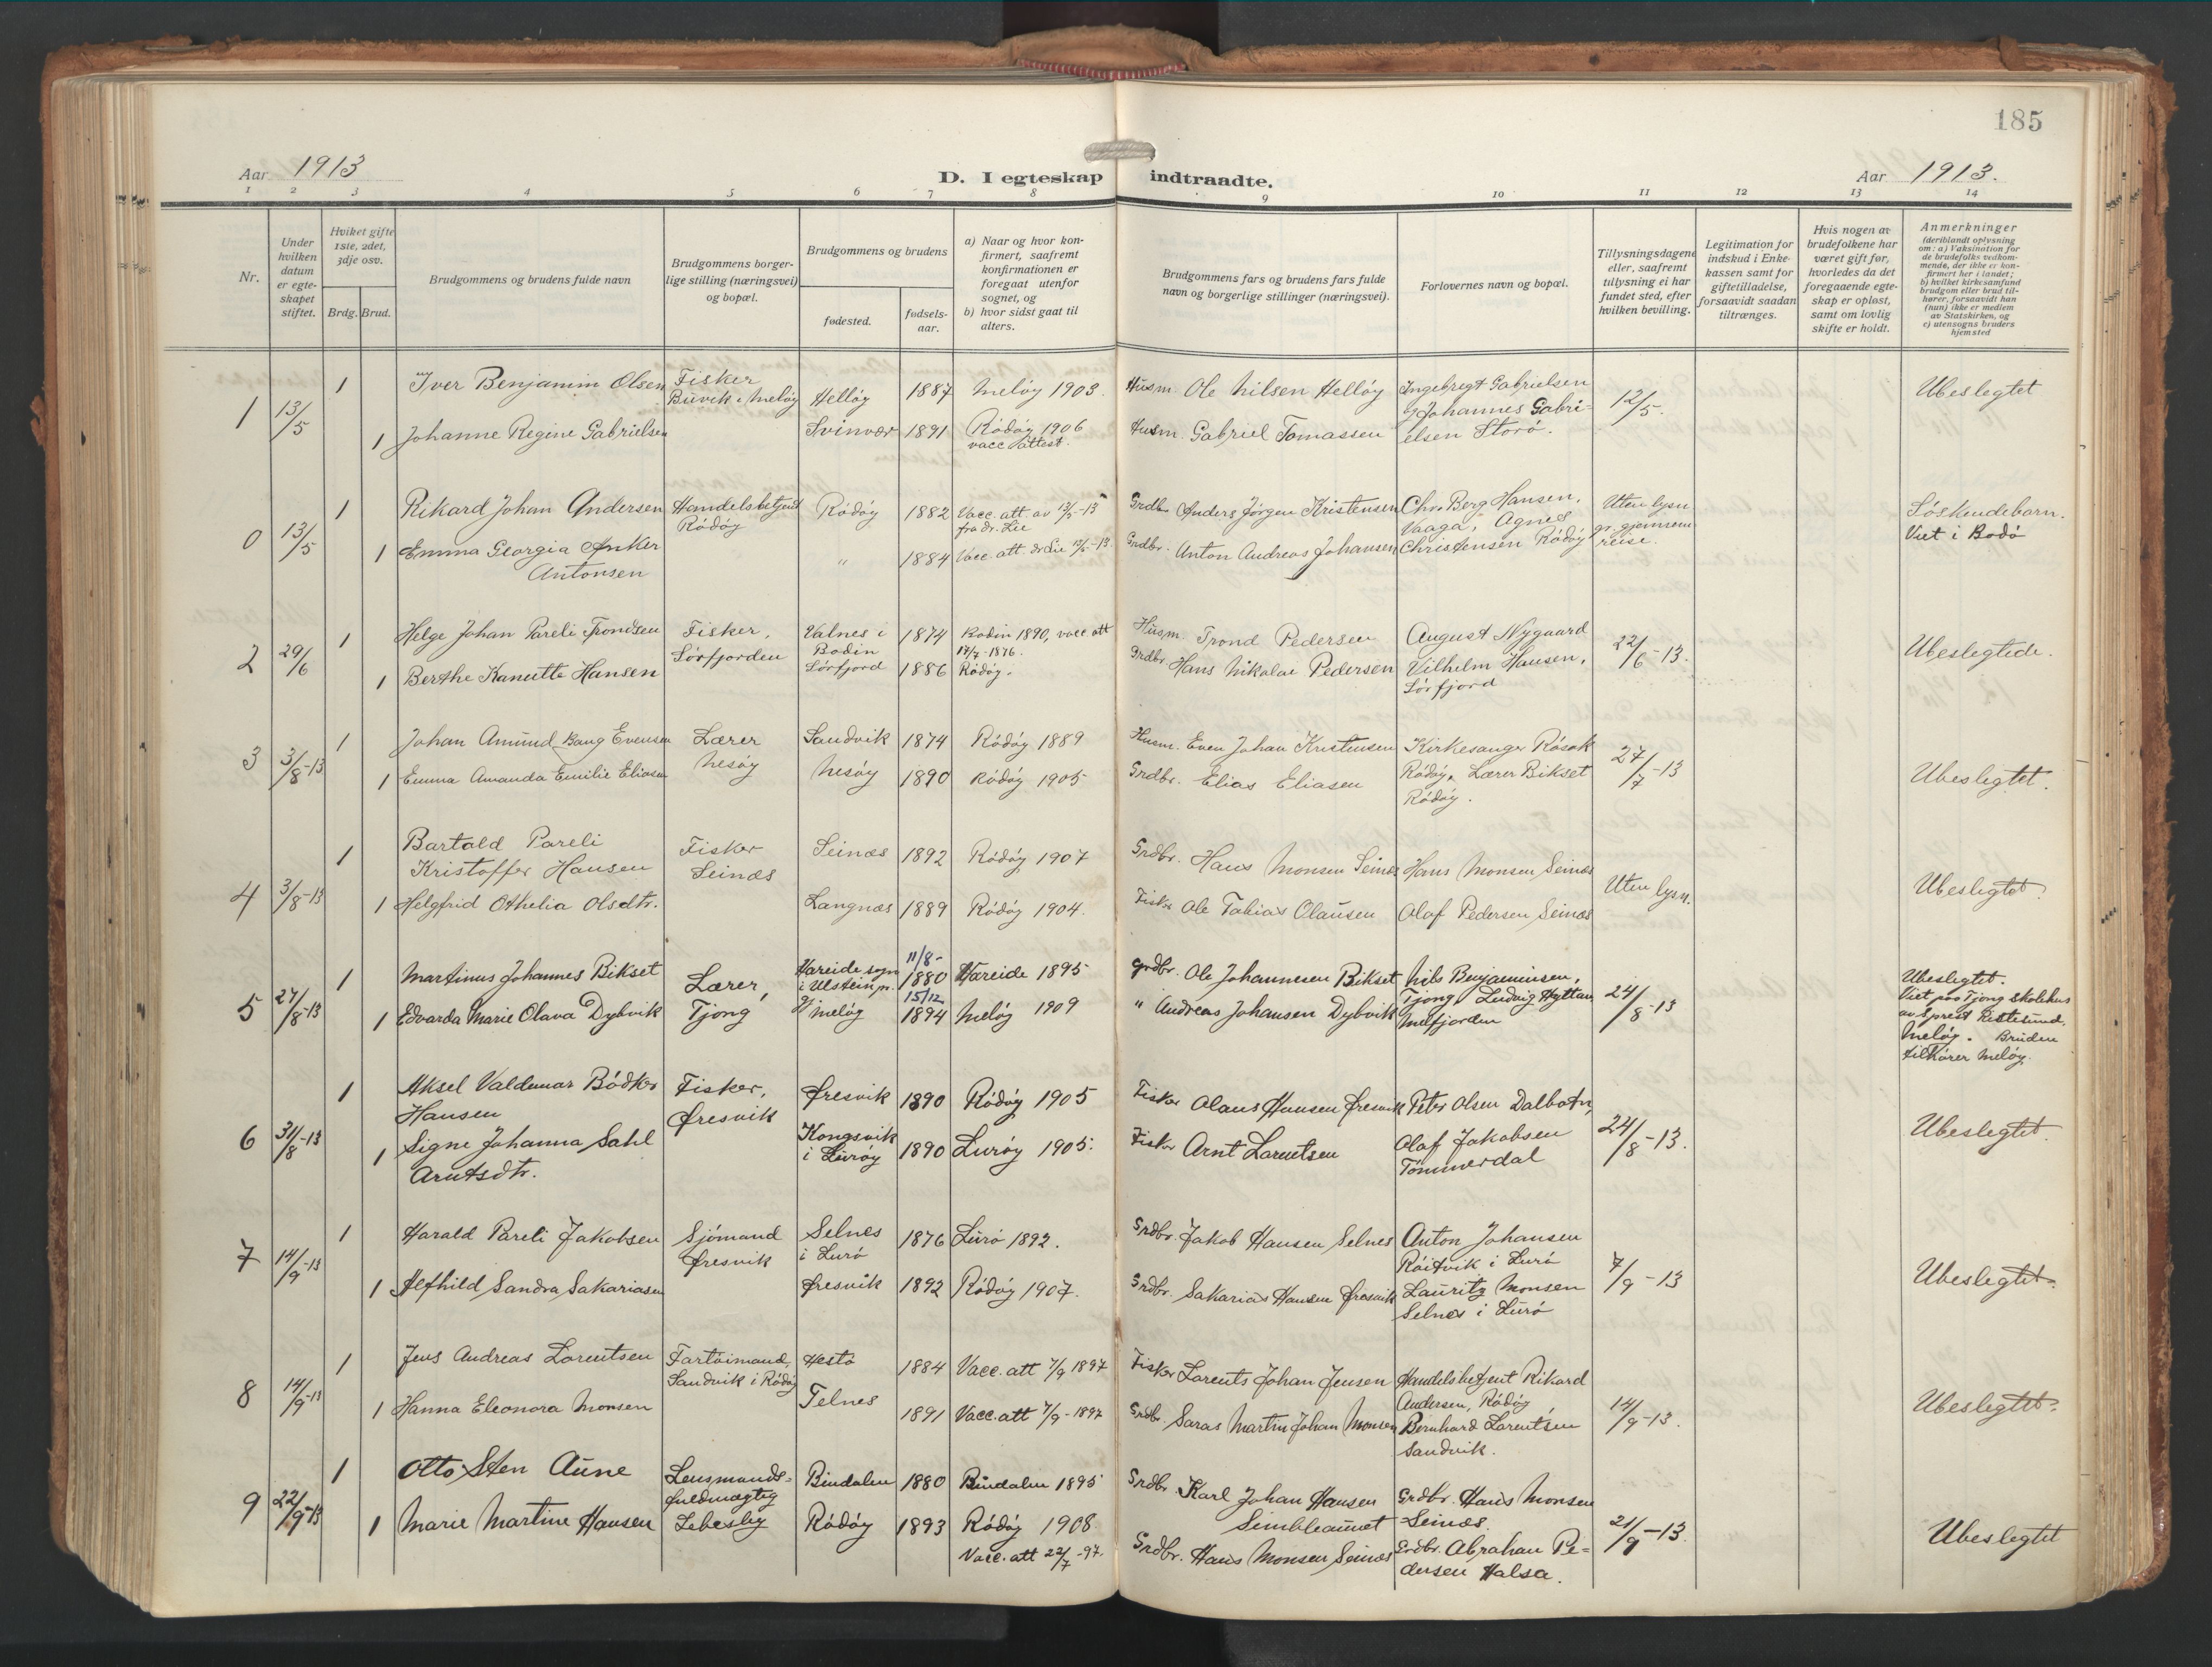 185
Aar 1913
D. I egteskap indtraadte.
Aar 1913.
1 2 3 4 5 6 7 8 9 10 11 12 13 14
Nr.
Under hvilken datum er egteskapet stiftet.
Hvilket gifte 1ste, 2det, 3dje osv.
Brdg. Brud.
Brudgommens og brudens fulde navn
Brudgommens borgerlige stilling (næringsvei) og bopæl.
Brudgommens og brudens
fødested.
fødselsaar.
a) Naar og hvor konfirmert, saafremt konfirmationen er foregaat utenfor sognet, og
b) hvor sidst gaat til alters.
Brudgommens fars og brudens fars fulde navn og borgerlige stillinger (næringsvei).
Forlovernes navn og bopæl.
Tillysningsdagene eller, saafremt tillysning ei har fundet sted, efter hvilken bevilling.
Legitimation for indskud i Enkekassen samt for giftetilladelse, forsaavidt saadan tiltrænges.
Hvis nogen av brudefolkene har været gift før, hvorledes da det foregaaende egteskap er opløst, samt om lovlig skifte er holdt.
Anmerkninger
(deriblandt oplysning om: a) Vaksination for de brudefolks vedkommende, der ikke er konfirmert her i landet;
b) hvilket kirkesamfund brudgom eller brud tilhører, forsaavidt han (hun) ikke er medlem av Statskirken, og
c) utensogns bruders hjemsted
1 13/5
1 Iver Benjamin Olsen Fisker Buvik i Meløy Helløy 1887 Meløy 1903. Husm. Ole Nilsen Helløy
1 Johanne Regine Gabrielsen Svinvær 1891 Rødøy 1906 vacc attest. Husm. Gabriel Tomassen
Ingebrigt Gabrielsen
og Johannes Gabri-
elsen Storø.
12/5.
Ubeslegtet
0 13/5
1 Rikard Johan Andersen Handelsbetjent Rødøy Rødøy 1882 Vacc. att. av 12/5-13 fra dr. Lie Grdbr. Anders Jørgen Kristensen
1 Emma Georgia Anker Antonsen " 1884 Vacc. att. dr Lie 12/5-13. Grdbr. Anton Andreas Johansen
Chr. Berg Hansen,
Vaaga, Agnes
Christensen Rødøy
Uten lysn
gr. gjennem
reise.
Søskendebarn.
Viet i Bodø
2 29/6
1 Helge Johan Pareli Trondsen Fisker, Sørfjorden Valnes i Bodin 1874 Bodin 1890, vacc. att 17/7-1876. Husm. Trond Pedersen
1 Berthe Kanutte Hansen Sørfjord 1886 Rødøy. Grdbr. Hans Nikolai Pedersen
August Nygaard
Vilhelm Hansen,
Sørfjord
22/6-13.
Ubeslegtede.
3 3/8-13
1 Johan Amund Bang Evensen Lærer Nesøy Sandvik 1874 Rødøy 1889 Husm. Even Johan Kristensen
1 Emma Amanda Emilie Eliasen Nesøy 1890 Rødøy 1905 Grdbr. Elias Eliasen
Kirkesanger Røsok
Rødøy, Lærer Bikset
Rødøy.
27/7-13
Ubeslegtet.
4 3/8-13
1 Bartold Pareli Kristoffer Hansen Fisker Seinæs Seinæs 1892 Rødøy 1907 Grdbr. Hans Monsen Seinæs
1 Helgfrid Othelia Olsdtr. Langnæs 1889 Rødøy 1904. Fisker Ole Tobias Olausen
Hans Monsen Seinæs
Olaf Pedersen Seinæs
Uten lysn.
Ubeslegtet.
5 27/8-13
1 Martinus Johannes Bikset Lærer, Tjong Hareide sogn i Ulstein p. 11/8-1880 Hareide 1895 Grdbr. Ole Johannesen Bikset
1 Edvarda Marie Olava Dybvik Meløy 15/12 1894 Meløy 1909 " Andreas Johansen Dybvik
Nils Benjaminsen,
Tjong, Ludvig Hyttan
Melfjorden
24/8-13
Ubeslegtet.
Viet paa Tjong skolehus
av sprest
Meløy. Bruden
tilhører Meløy.
6 31/8-13
1 Aksel Valdemar Bødker Hansen Fisker, Øresvik Øresvik 1890 Rødøy 1905 Fisker Olaus Hansen Øresvik
1 Signe Johanna Sahl Arntsdtr. Kongsvik i Lurøy 1890 Lurøy 1905. Fisker Arnt Lorentsen
Peter Olsen Dalbotn,
Olaf Jakobsen
Tømmerdal
24/8-13.
Ubeslegtet.
7 14/9-13
1 Harald Pareli Jakobsen Sjømand Øresvik Selnes i Lurø 1876 Lurø 1892. Grdbr. Jakob Hansen Selnes
1 Alfhild Sandra Sakariasen Øresvik 1892 Rødøy 1907. Grdbr. Sakarias Hansen Øresvik
Anton Johansen
Røitvik i Lurø
Lauritz Monsen
Selnes i Lurø
7/9-13
Ubeslegtet.
8 14/9-13
1 Jens Andreas Lorentsen Fartøimand, Sandvik i Rødøy Hestø 1884 Vacc. att 7/9 1897 Fisker Lorents Johan Jensen
1 Hanna Eleonora Monsen Telnes 1891 Vacc. att 7/9-1897 Grdbr. Saras Martin Johan Monsen
Handelsbetjent Rikard
Andersen, Rødøy
Bernhard Lorentsen
Sandvik.
14/9-13.
Ubeslegtet.
9 22/9-13
1 Otto Sten Aune Lensmandsfuldmægtig Lebesby Bindalen 1880 Bindalen 1895 Grdbr. Karl Johan Hansen
1 Marie Martine Hansen Rødøy 1893 Rødøy 1908 Vacc. att 22/7-97. Grdbr. Hans Monsen Seinæs
Grdbr. Hans Monsen
Seinæs.
Grdbr. Abraham Pe-
dersen Halsa.
21/9-13.
Ubeslegtet